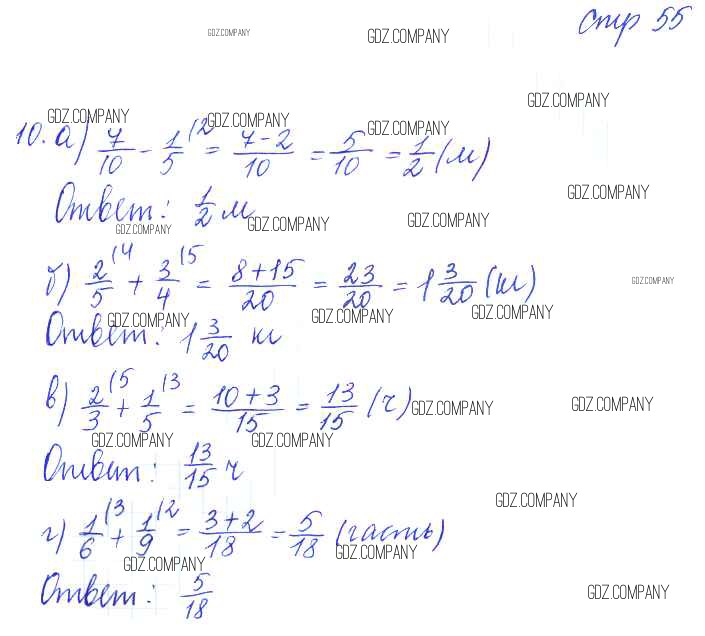 стр 55
GDZ.COMPANY GDZ.COMPANY
GDZ.COMPANY
GDZ.COMPANY GDZ.COMPANY GDZ.COMPANY
10. а) 7/10 - 1/5 (2 = 7-2/10 = 5/10 = 1/2 (м)
GDZ.COMPANY
Ответ: 1/2 м
GDZ.COMPANY GDZ.COMPANY GDZ.COMPANY
б) 2/5 (4 + 3/4 (5 = 8+15/20 = 23/20 = 1 3/20 (кг)
GDZ.COMPANY
GDZ.COMPANY GDZ.COMPANY GDZ.COMPANY
Ответ: 1 3/20 кг
в) 2/3 (5 + 1/5 (3 = 10+3/15 = 13/15 (ч)
GDZ.COMPANY GDZ.COMPANY
GDZ.COMPANY GDZ.COMPANY
Ответ: 13/15 ч
GDZ.COMPANY
г) 1/6 (3 + 1/9 (2 = 3+2/18 = 5/18 (часть)
GDZ.COMPANY GDZ.COMPANY
Ответ: 5/18
GDZ.COMPANY